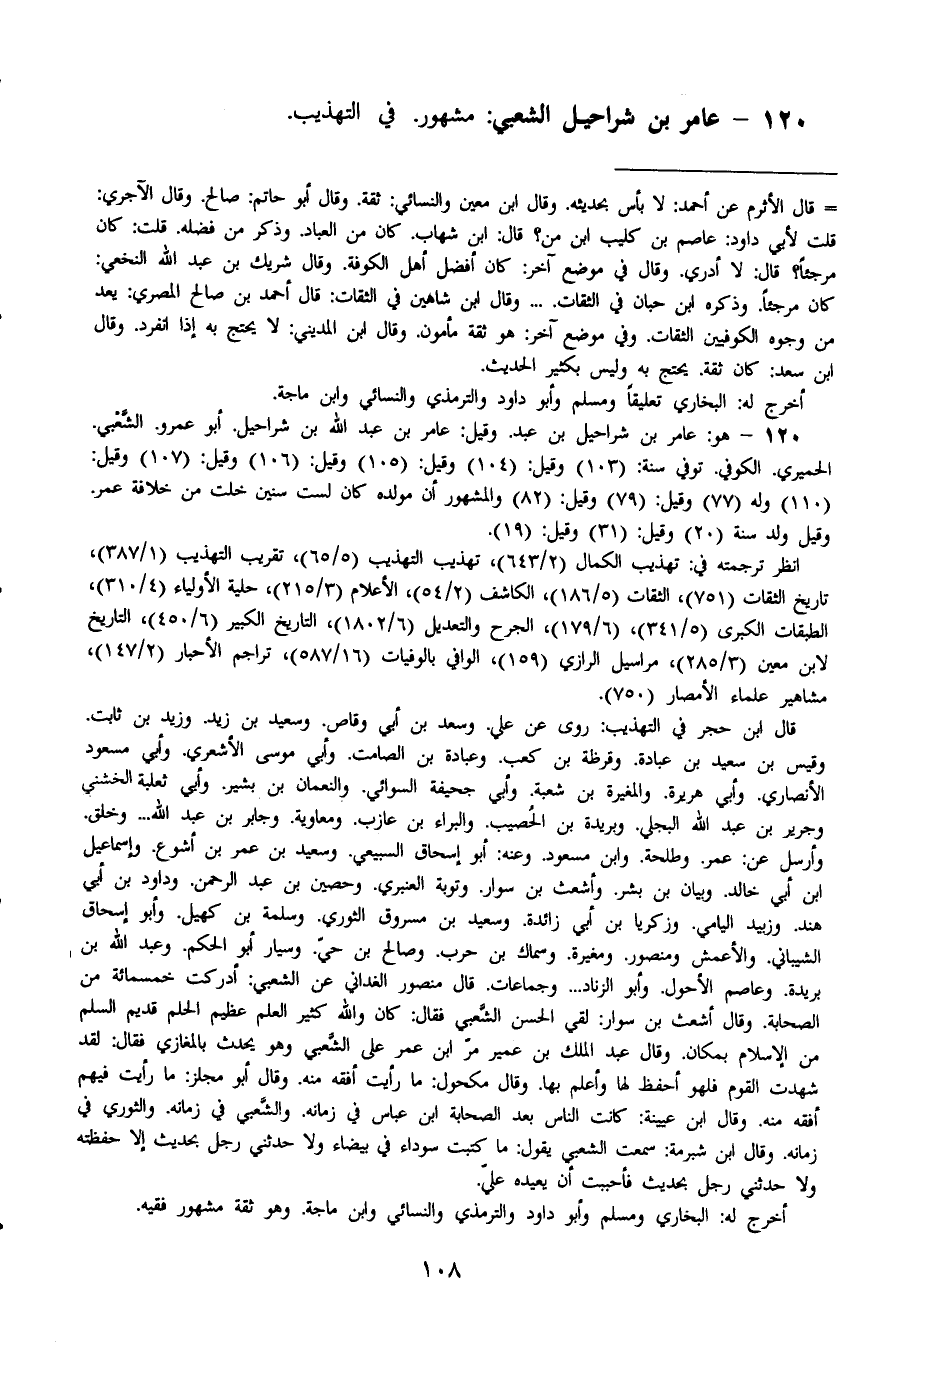 ١٢٠ - عامر بن شراحيل الشعبي: مشهور. في التهذيب.
= قال الأثرم عن أحمد: لا بأس بحديثه. وقال ابن معين والنسائي: ثقة. وقال أبو حاتم: صالح. وقال الآجري:
قلت لأبي داود: عاصم بن كليب ابن من؟ قال: ابن شهاب. كان من العباد. وذكر من فضله. قلت: كان
مرجئاً؟ قال: لا أدري. وقال في موضع آخر: كان أفضل أهل الكوفة. وقال شريك بن عبد الله النخعي:
كان مرجئاً. وذكره ابن حبان في الثقات. ... وقال ابن شاهين في الثقات: قال أحمد بن صالح المصري: يعد
من وجوه الكوفيين الثقات. وفي موضع آخر: هو ثقة مأمون. وقال ابن المديني: لا يحتج به إذا انفرد. وقال
ابن سعد: كان ثقة. يحتج به وليس بكثير الحديث.
أخرج له: البخاري تعليقاً ومسلم وأبو داود والترمذي والنسائي وابن ماجة.
١٢٠ - هو: عامر بن شراحيل بن عبد. وقيل: عامر بن عبد الله بن شراحيل. أبو عمرو. الشَّعْبي.
الحميري. الكوفي. توفي سنة: (١٠٣) وقيل: (١٠٤) وقيل: (١٠٥) وقيل: (١٠٦) وقيل: (١٠٧) وقيل:
(١١٠) وله (٧٧) وقيل: (٧٩) وقيل: (٨٢) والمشهور أن مولده كان لست سنين خلت من خلافة عمر.
وقيل ولد سنة (٢٠) وقيل: (٣١) وقيل: (١٩).
انظر ترجمته في: تهذيب الكمال (٦٤٣/٢)، تهذيب التهذيب (٦٥/٥)، تقريب التهذيب (٣٨٧/١)،
تاريخ الثقات (٧٥١)، الثقات (١٨٦/٥)، الكاشف (٥٤/٢)، الأعلام (٢١٥/٣)، حلية الأولياء (٣١٠/٤)،
الطبقات الكبرى (٣٤١/٥)، (١٧٩/٦)، الجرح والتعديل (١٨٠٢/٦)، التاريخ الكبير (٤٥٠/٦)، التاريخ
لابن معين (٢٨٥/٣)، مراسيل الرازي (١٥٩)، الوافي بالوفيات (٥٨٧/١٦)، تراجم الأحبار (١٤٧/٢)،
مشاهير علماء الأمصار (٧٥٠).
قال ابن حجر في التهذيب: روى عن علي. وسعد بن أبي وقاص. وسعيد بن زيد. وزيد بن ثابت.
وقيس بن سعيد بن عبادة. وقرظة بن كعب. وعبادة بن الصامت. وأبي موسى الأشعري. وأبي مسعود
الأنصاري. وأبي هريرة. والمغيرة بن شعبة. وأبي جحيفة السوائي. والنعمان بن بشير. وأبي ثعلبة الخشني
وجرير بن عبد الله البجلي. وبريدة بن الحُصيب. والبراء بن عازب. ومعاوية. وجابر بن عبد الله... وخلق.
وأرسل عن: عمر. وطلحة. وابن مسعود. وعنه: أبو إسحاق السبيعي. وسعيد بن عمر بن أشوع. وإسماعيل
ابن أبي خالد. وبيان بن بشر. وأشعث بن سوار. وتوبة العنبري. وحصين بن عبد الرحمن. وداود بن أبي
هند. وزبيد اليامي. وزكريا بن أبي زائدة. وسعيد بن مسروق الثوري. وسلمة بن كهيل. وأبو إسحاق
الشيباني. والأعمش ومنصور. ومغيرة. وسماك بن حرب. وصالح بن حيّ. وسيار أبو الحكم. وعبد الله بن
بريدة. وعاصم الأحول. وأبو الزناد... وجماعات. قال منصور الغداني عن الشعبي: أدركت خمسمائة من
الصحابة. وقال أشعث بن سوار: لقي الحسن الشَّعبي فقال: كان والله كثير العلم عظيم الحلم قديم السلم
من الإسلام بمكان. وقال عبد الملك بن عمير مرّ ابن عمر على الشَّعبي وهو يحدث بالمغازي فقال: لقد
شهدت القوم فلهو أحفظ لها وأعلم بها. وقال مكحول: ما رأيت أفقه منه. وقال أبو مجلز: ما رأيت فيهم
أفقه منه. وقال ابن عيينة: كانت الناس بعد الصحابة ابن عباس في زمانه. والشَّعبي في زمانه. والثوري في
زمانه. وقال ابن شبرمة: سمعت الشعبي يقول: ما كتبت سوداء في بيضاء ولا حدثني رجل بحديث إلا حفظته
ولا حدثني رجل بحديث فأحببت أن يعيده عليّ.
أخرج له: البخاري ومسلم وأبو داود والترمذي والنسائي وابن ماجة. وهو ثقة مشهور فقيه.
١٠٨